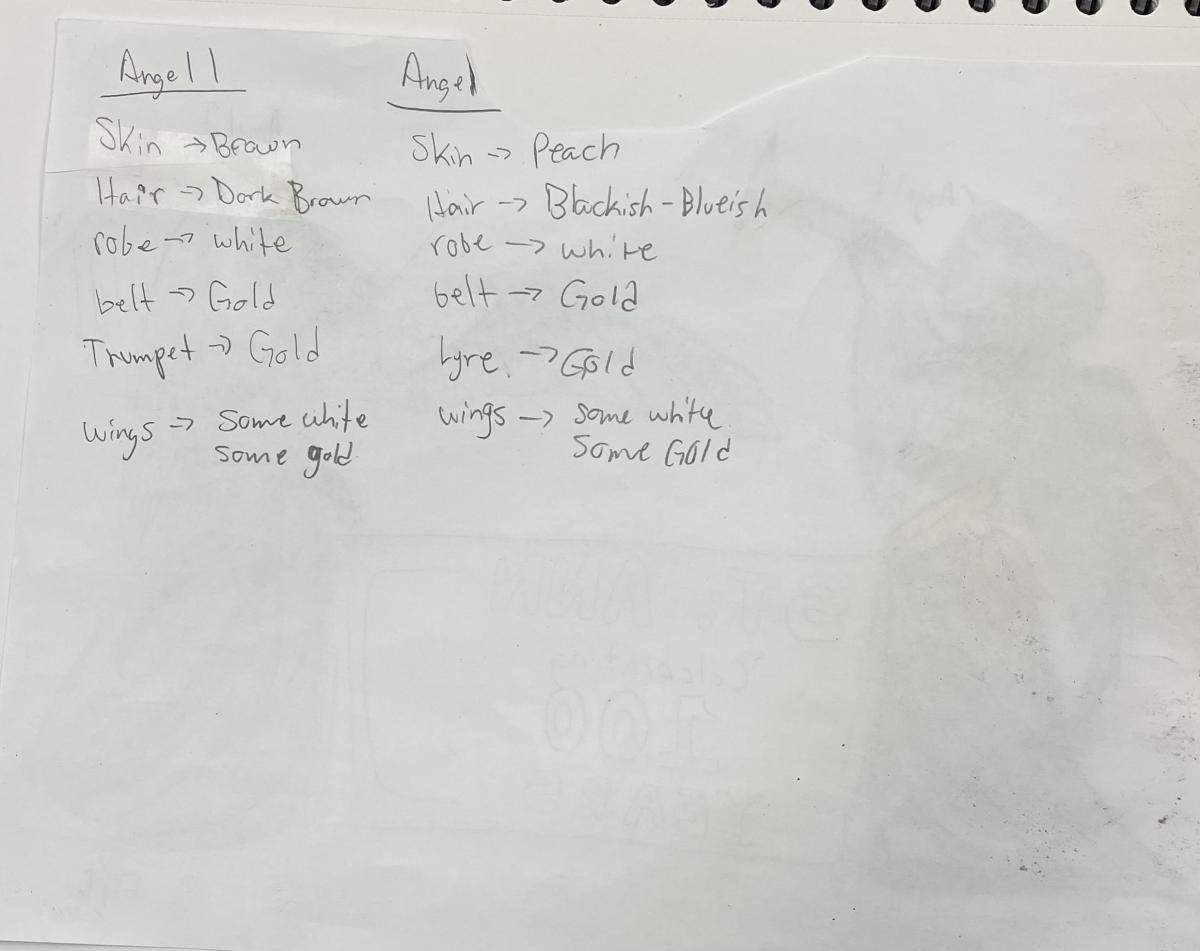 Angel 1
Skin → Brown
Hair → Dark Brown
robe → white
belt → Gold
Trumpet → Gold
wings → Some white
some gold
Angel
Skin → Peach
Hair → Blackish-Blueish
robe → white
belt → Gold
Lyre → Gold
wings → some white
Some Gold
ST. ANN
Celebrating
100
YEARS